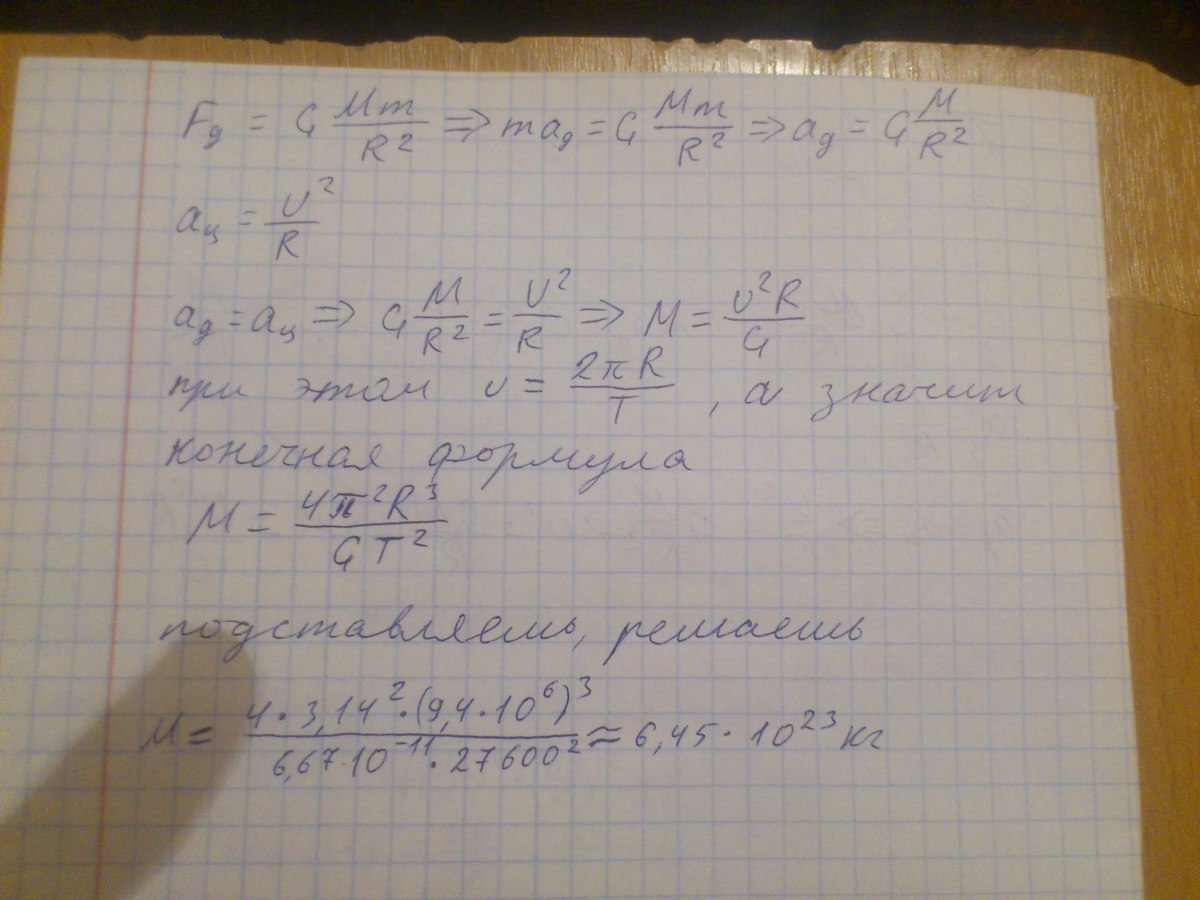 Fg = G Mm/R² => mag = G Mm/R² => ag = G M/R²
aц = v²/R
ag = aц => G M/R² = v²/R => M = v²R/G
при этом v = 2πR/T , а значит
конечная формула
M = 4π²R³/GT²
подставляешь, решаешь
M = 4·3,14²·(9,4·10⁶)³/6,67·10⁻¹¹·27600² ≈ 6,45·10²³ кг